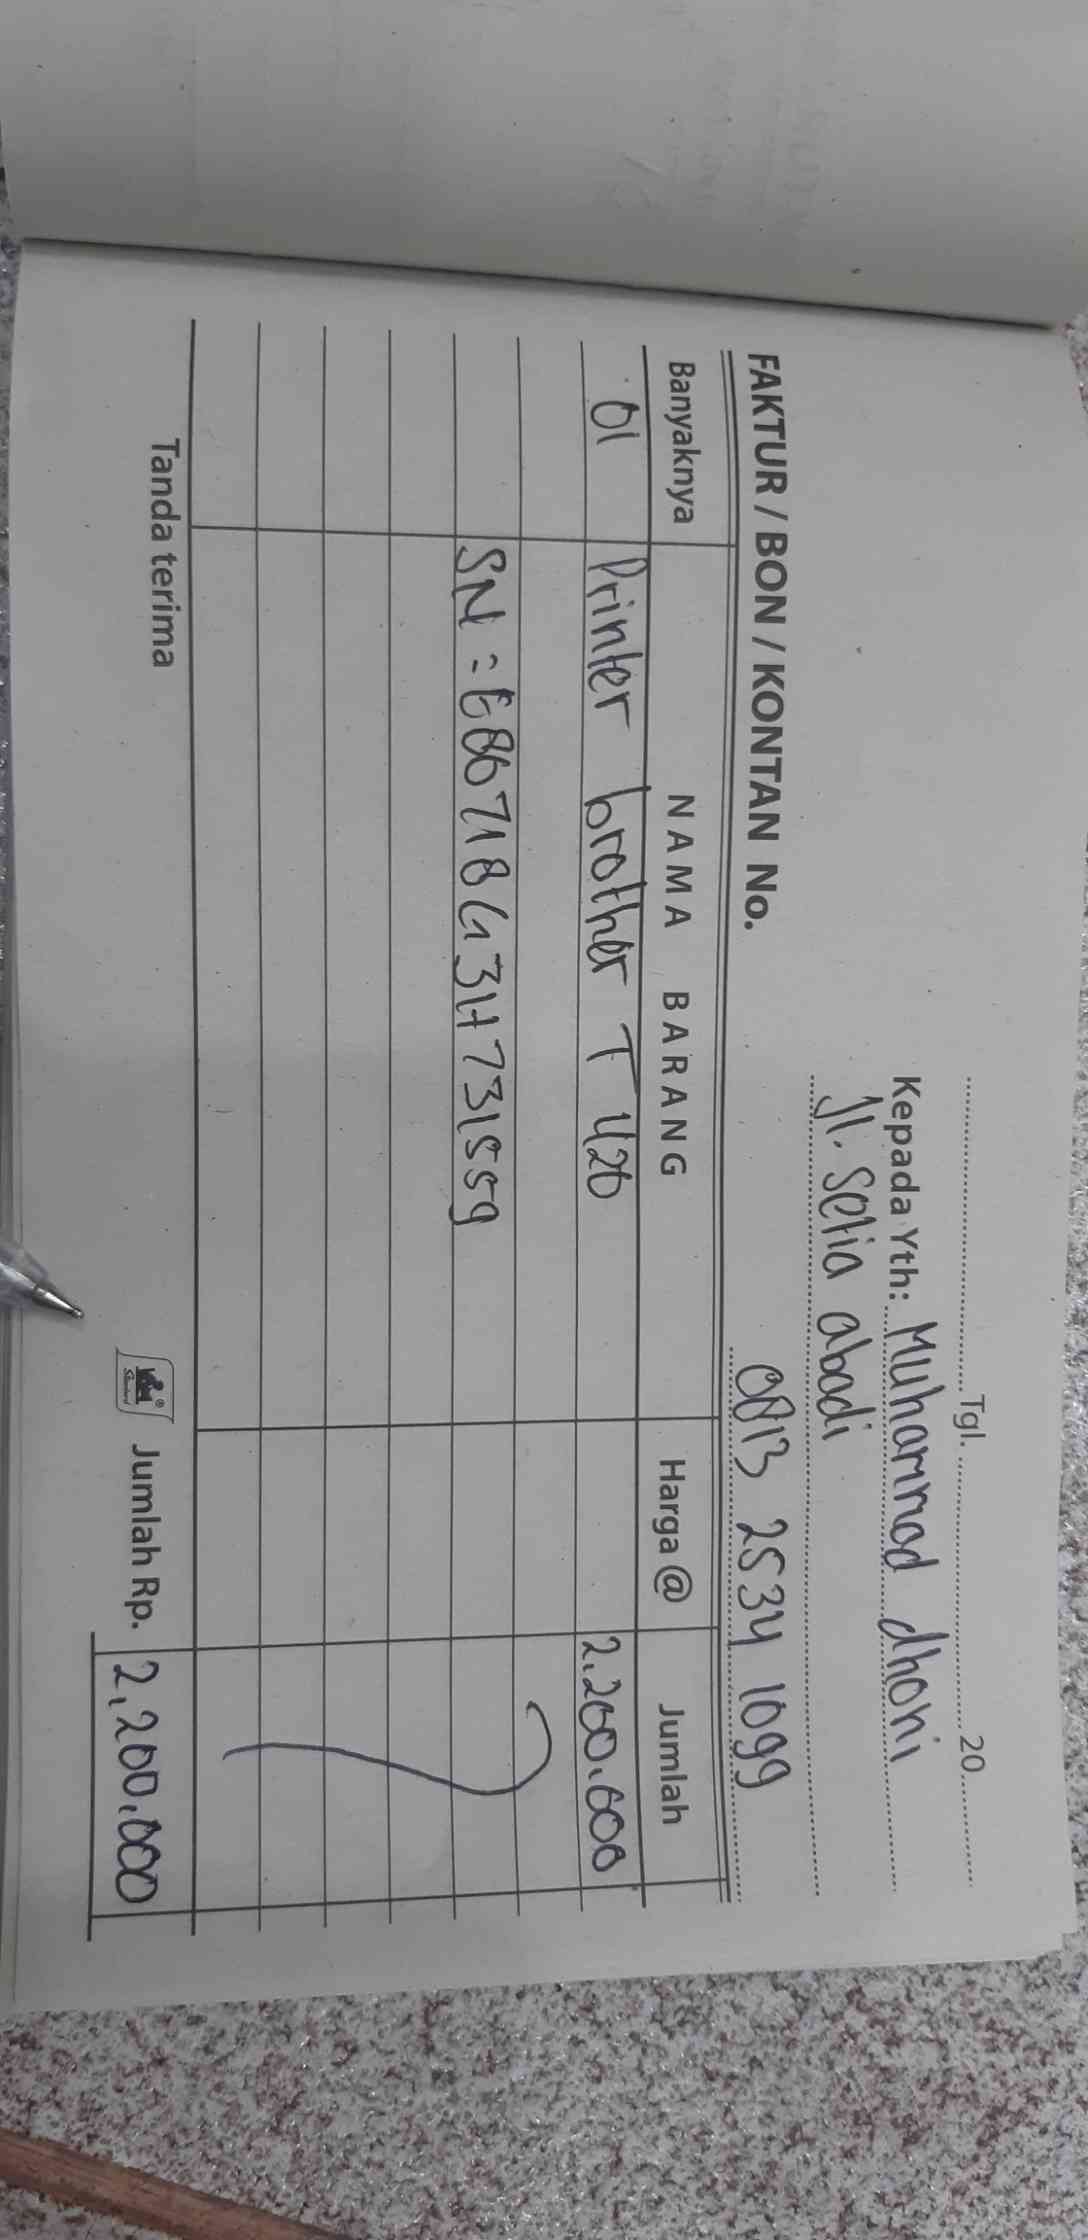 Tgl. 20
Kepada Yth: Muhammad dhoni
Jl. Setia abadi
0813 2534 1099
FAKTUR / BON / KONTAN No.
Banyaknya NAMA BARANG Harga @ Jumlah
01 Printer brother T 420 2.200.000
SN = E86718G3H731559
Tanda terima
Standard
Jumlah Rp. 2,200.000